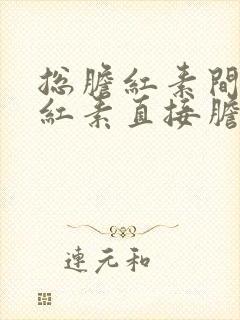 总膽紅素間
紅素直接膽
連元和